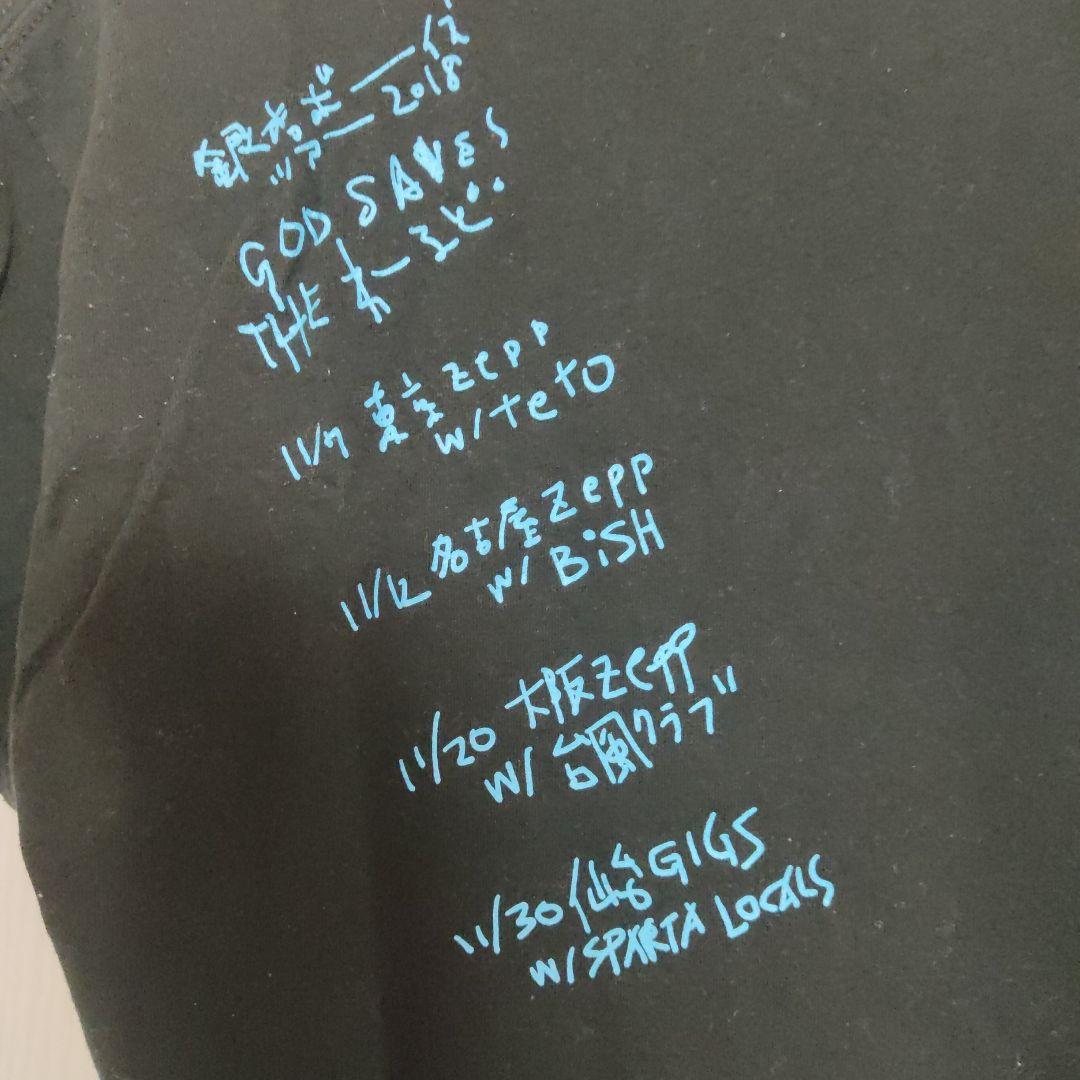 銀杏ボーイズ
ツアー2018
GOD SAVES
THE わーるど
11/7 東京 zepp
w/ teto
11/12 名古屋 Zepp
w/ BiSH
11/20 大阪 Zepp
w/ 台風クラブ
11/30 仙台 GIGS
w/ SPARTA LOCALS